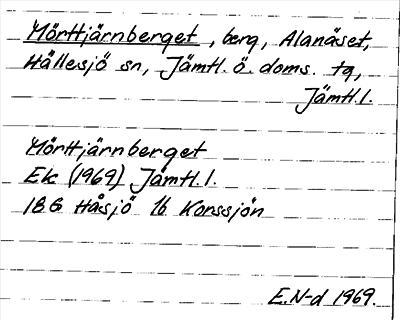 Mörttjärnberget, berg, Alanäset,
Hällesjö sn, Jämtl. ö. doms. tg,
Jämtl. l.
Mörttjärnberget
Ek (1969) Jämtl. l.
18G Håsjö 1b Korssjön
E.N-d 1969.